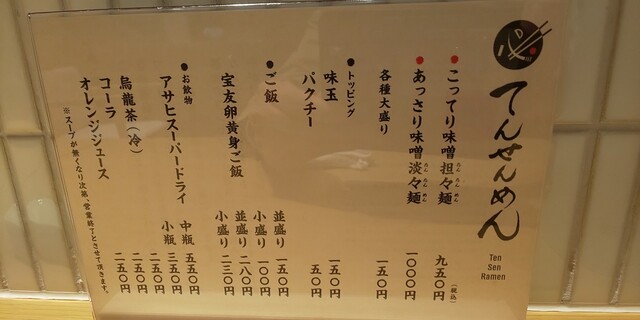 てんせんめん
Ten
Sen
Ramen
●こってり味噌 担々麺 たんたんめん 九五〇円（税込）
●あっさり味噌 淡々麺 たんたんめん 一〇〇〇円
各種大盛り 一五〇円
●トッピング
味玉 一五〇円
パクチー 五〇円
●ご飯 並盛り 一五〇円
小盛り 一〇〇円
宝友卵黄身ご飯 並盛り 二八〇円
小盛り 二三〇円
●お飲物
アサヒスーパードライ 中瓶 五五〇円
小瓶 三五〇円
烏龍茶（冷） 二五〇円
コーラ 二五〇円
オレンジジュース 二五〇円
※スープが無くなり次第、営業終了とさせて頂きます。